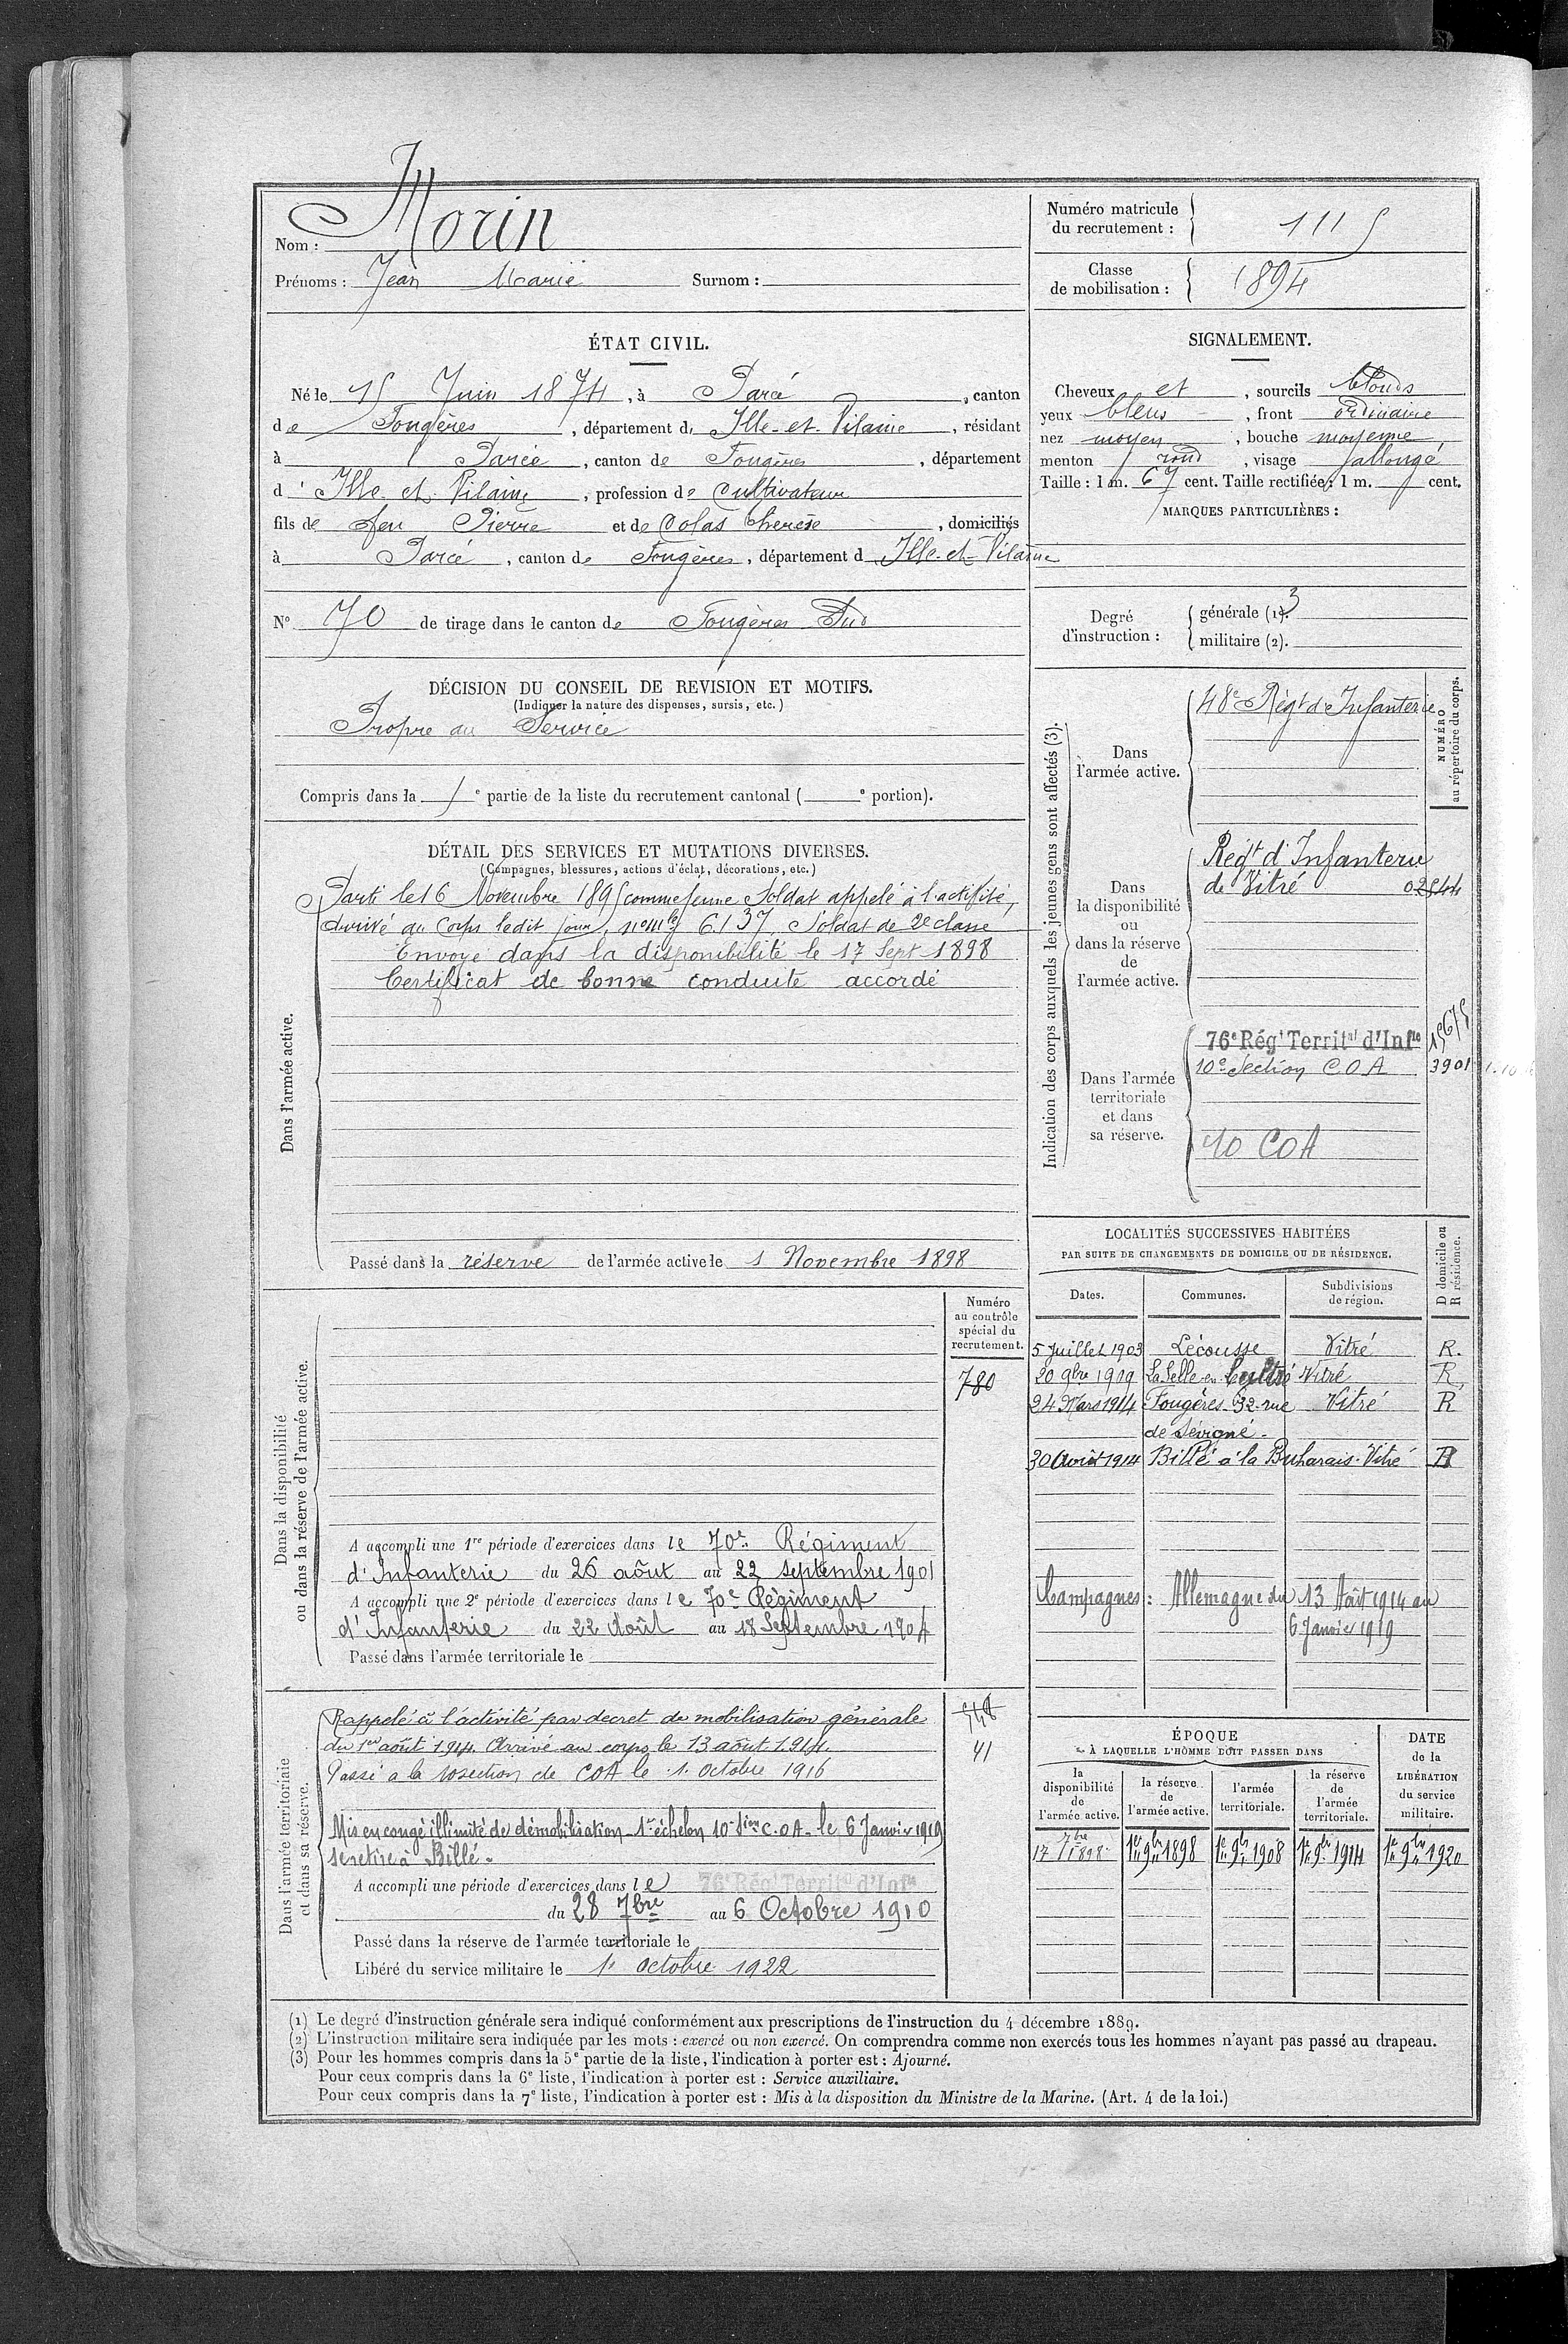 Nom : Morin
Prénoms : Jean Marie Surnom :
Numéro matricule du recrutement : 1115
Classe de mobilisation : 1894
ÉTAT CIVIL.
Né le 15 Juin 1874, à Parcé, canton
de Fougères, département d' Ille-et-Vilaine, résidant
à Parcé, canton de Fougères, département
d' Ille et Vilaine, profession de Cultivateur
fils de feu Pierre et de Colas Therese, domiciliés
à Parcé, canton de Fougères, département d Ille-et-Vilaine
N° 70 de tirage dans le canton de Fougères Sud
SIGNALEMENT.
Cheveux et, sourcils blonds
yeux bleus, front ordinaire
nez moyen, bouche moyenne,
menton rond, visage allongé
Taille : 1 m. 67 cent. Taille rectifiée : 1 m. cent.
MARQUES PARTICULIÈRES :
Degré d'instruction :
générale (1). 3
militaire (2).
DÉCISION DU CONSEIL DE REVISION ET MOTIFS.
(Indiquer la nature des dispenses, sursis, etc.)
Propre au Service
Compris dans la 1e partie de la liste du recrutement cantonal ( e portion).
DÉTAIL DES SERVICES ET MUTATIONS DIVERSES.
(Campagnes, blessures, actions d'éclat, décorations, etc.)
Dans l'armée active.
Parti le 16 Novembre 1895 comme jeune Soldat appelé à l'activité,
arrivé au Corps ledit jour, n° mle 6137, Soldat de 2e classe
Envoyé dans la disponibilité le 17 Sept 1898
Certificat de bonne conduite accordé
Passé dans la réserve de l'armée active le 1 Novembre 1898
Indication des corps auxquels les jeunes gens sont affectés (3).
NUMÉRO au répertoire du corps.
Dans l'armée active.
48e Régt d'Infanterie
Dans la disponibilité ou dans la réserve de l'armée active.
Régt d'Infanterie
de Vitré 02544
Dans l'armée territoriale et dans sa réserve.
76e Régt Territal d'Infie 15675
10e Section COA 3901
10 COA
LOCALITÉS SUCCESSIVES HABITÉES
PAR SUITE DE CHANGEMENTS DE DOMICILE OU DE RÉSIDENCE.
Dates. Communes. Subdivisions de région. D domicile ou R résidence.
5 Juillet 1903 Lécousse Vitré R.
20 9bre 1909 La Selle-en-Luitré Vitré R
24 Mars 1914 Fougères 32 rue Vitré R
de Sévigné.
30 Août 1914 Billé à la Buharais Vitré R
Campagnes : Allemagne du 13 Août 1914 au
6 Janvier 1919
Dans la disponibilité ou dans la réserve de l'armée active.
Numéro au contrôle spécial du recrutement.
780
A accompli une 1re période d'exercices dans le 70e Régiment
d'Infanterie du 26 août au 22 septembre 1901
A accompli une 2e période d'exercices dans le 70e Régiment
d'Infanterie du 22 Août au 18 Septembre 1904
Passé dans l'armée territoriale le
Dans l'armée territoriale et dans sa réserve.
Rappelé à l'activité par décret de mobilisation générale
du 1er août 1914. Arrivé au corps le 13 août 1914.
41
Passé a la 10 section de COA le 1 Octobre 1916
Mis en congé illimité de démobilisation 1er échelon 10e Sion C.O.A. le 6 Janvier 1919
se retire à Billé.
A accompli une période d'exercices dans le 76e Régt Territal d'Infie
du 28 7bre au 6 Octobre 1910
Passé dans la réserve de l'armée territoriale le
Libéré du service militaire le 1r Octobre 1922
ÉPOQUE
À LAQUELLE L'HOMME DOIT PASSER DANS
la disponibilité de l'armée active. la réserve de l'armée active. l'armée territoriale. la réserve de l'armée territoriale.
DATE de la LIBÉRATION du service militaire.
17 7bre 1898 1er 9bre 1898 1er 9bre 1908 1er 9bre 1914 1er 9bre 1920
(1) Le degré d'instruction générale sera indiqué conformément aux prescriptions de l'instruction du 4 décembre 1889.
(2) L'instruction militaire sera indiquée par les mots : exercé ou non exercé. On comprendra comme non exercés tous les hommes n'ayant pas passé au drapeau.
(3) Pour les hommes compris dans la 5e partie de la liste, l'indication à porter est : Ajourné.
Pour ceux compris dans la 6e liste, l'indication à porter est : Service auxiliaire.
Pour ceux compris dans la 7e liste, l'indication à porter est : Mis à la disposition du Ministre de la Marine. (Art. 4 de la loi.)